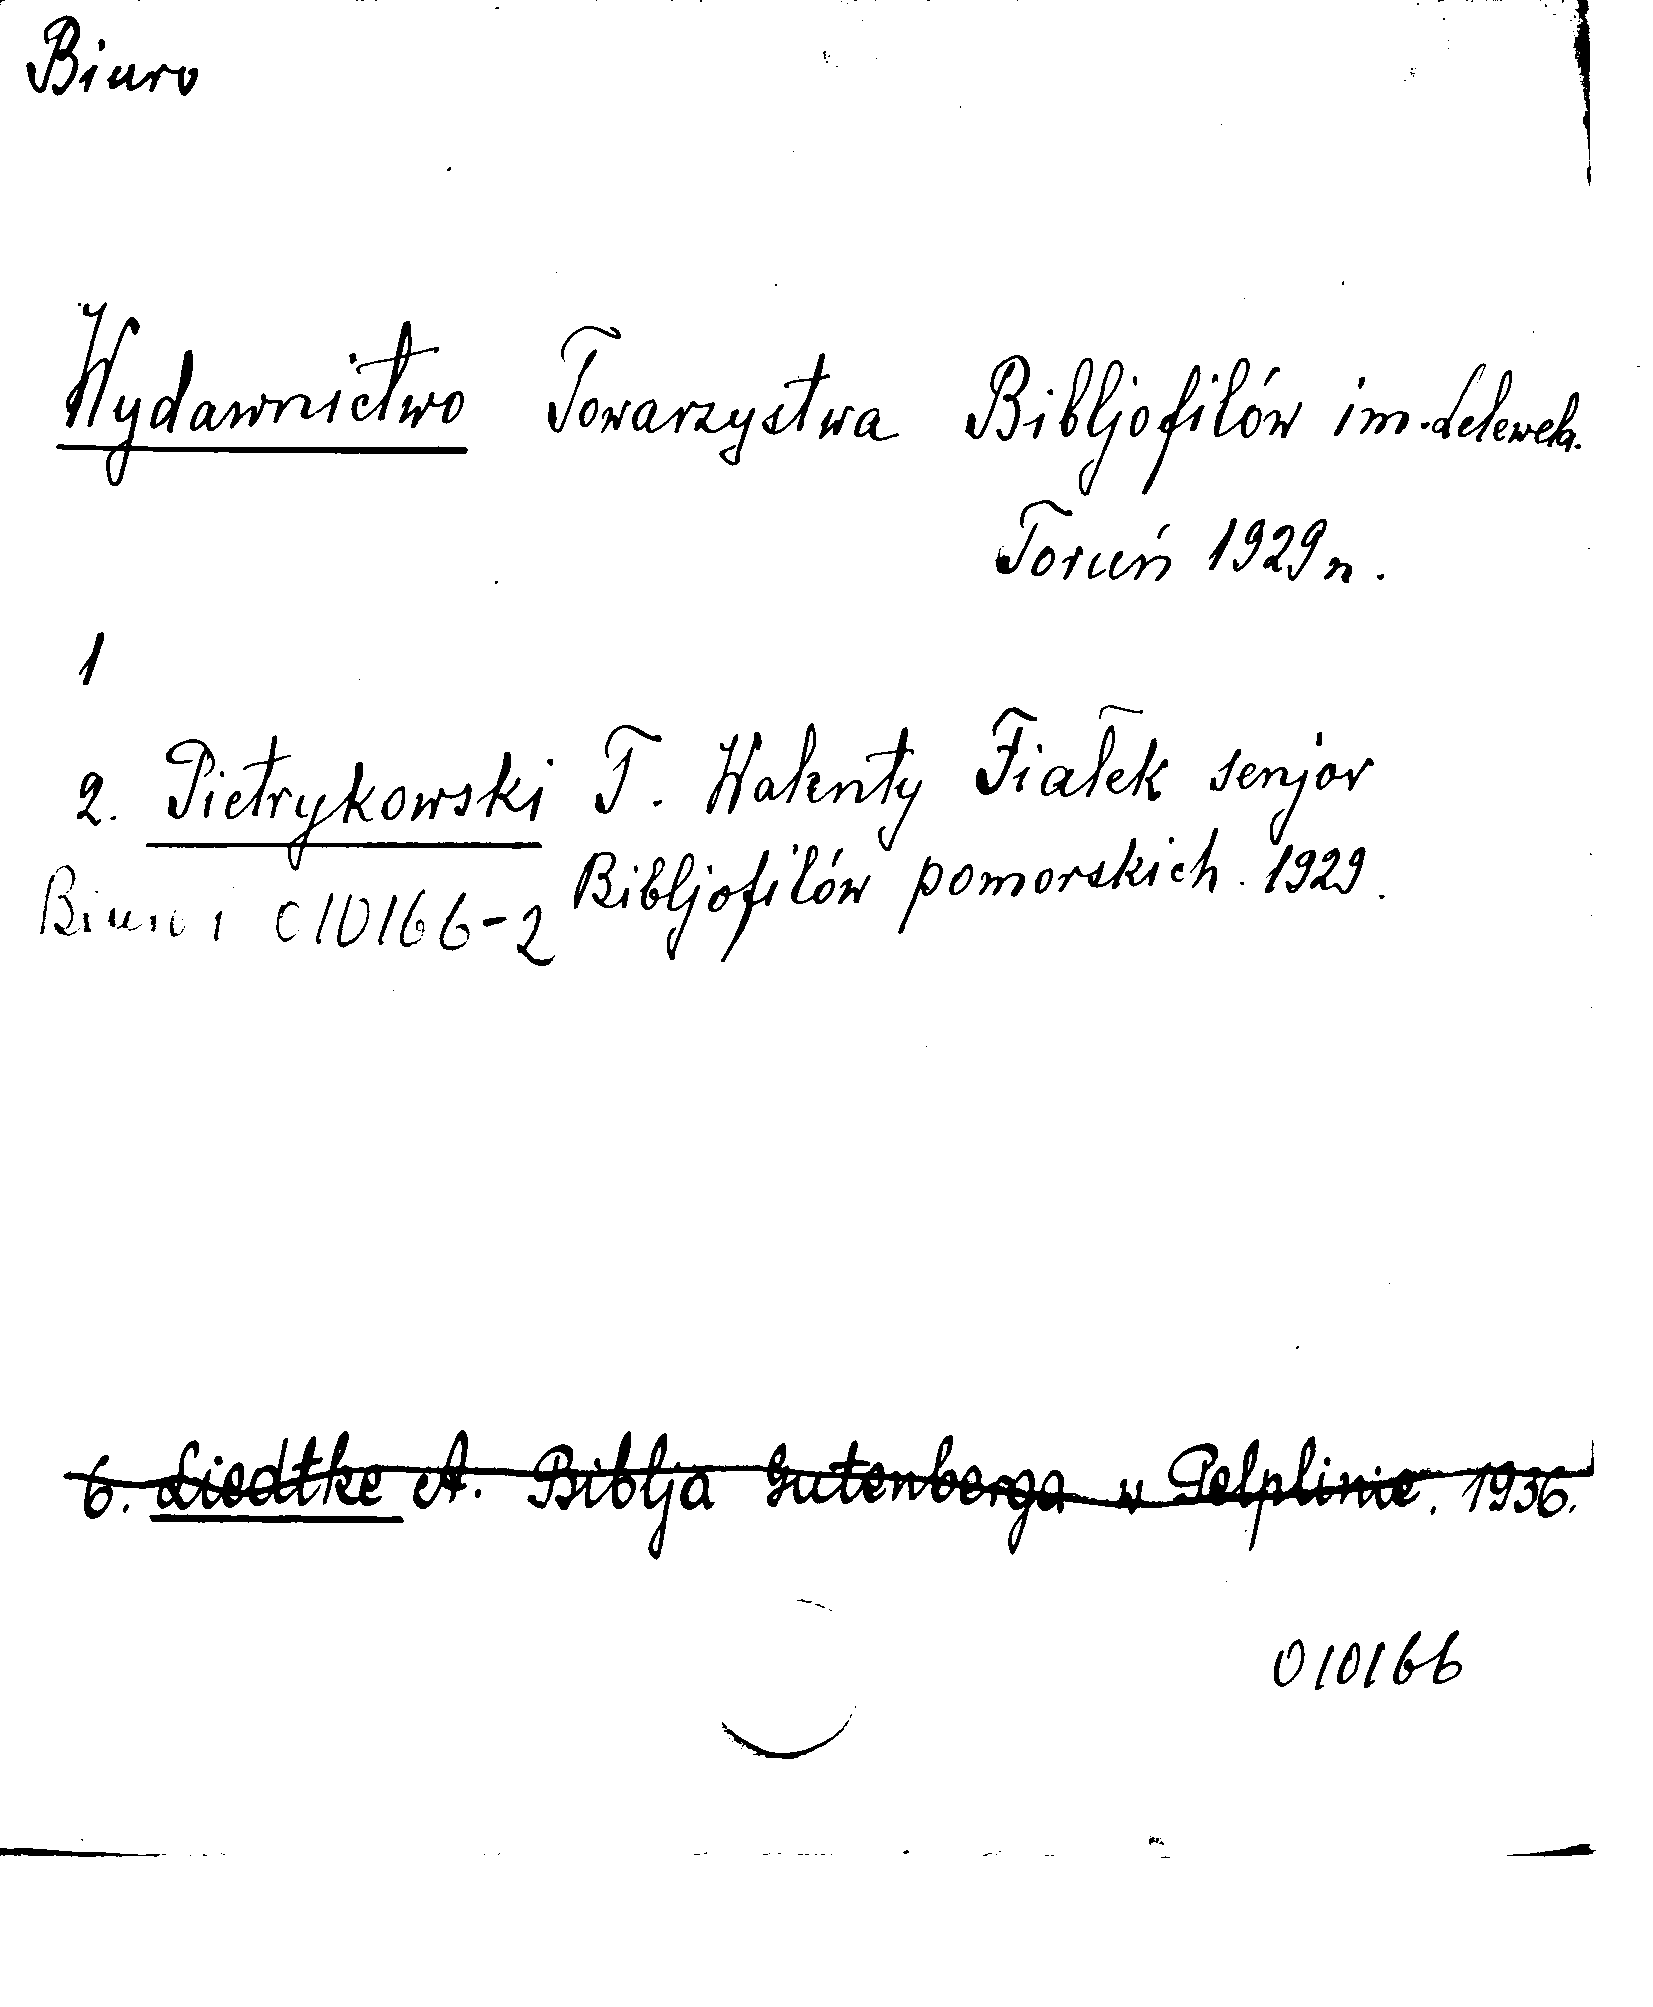 Biuro
Wydawnictwo Towarzystwa Bibljofilów im. Lelewela.
Toruń 1929 n.
1
2. Pietrykowski T. Walenty Fiałek senjor
Bibljofilów pomorskich. 1929.
Biuro 010166-2
6. Liedtke A. Biblja Gutenberga w Pelplinie. 1936.
010166